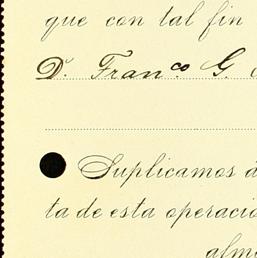 que con tal fin
D. Fran.co G.
Suplicamos á
ta de esta operació
alm